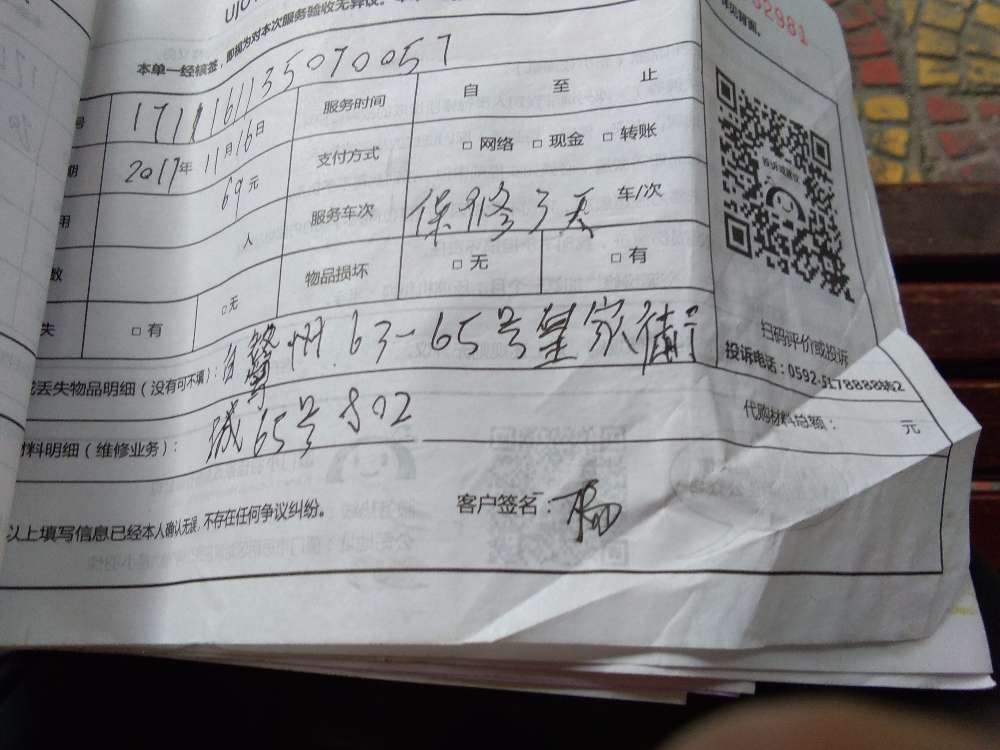 本单一经核签，即视为对本次服务验收无异议。
62981
号 1711161135070057 服务时间 自 至 止
期 2017年11月16日 支付方式 □ 网络 □ 现金 □ 转账
用 69元 服务车次 保修3天 车/次
数 人 物品损坏 □ 无 □ 有
失 □ 有 □ 无
丢失物品明细（没有可不填）： 州 63-65号皇家
材料明细（维修业务）： 城65号802
扫码评价或投诉
投诉电话：0592-5178888转2
代购材料总额： 元
以上填写信息已经本人确认无误，不存在任何争议纠纷。 客户签名：杨